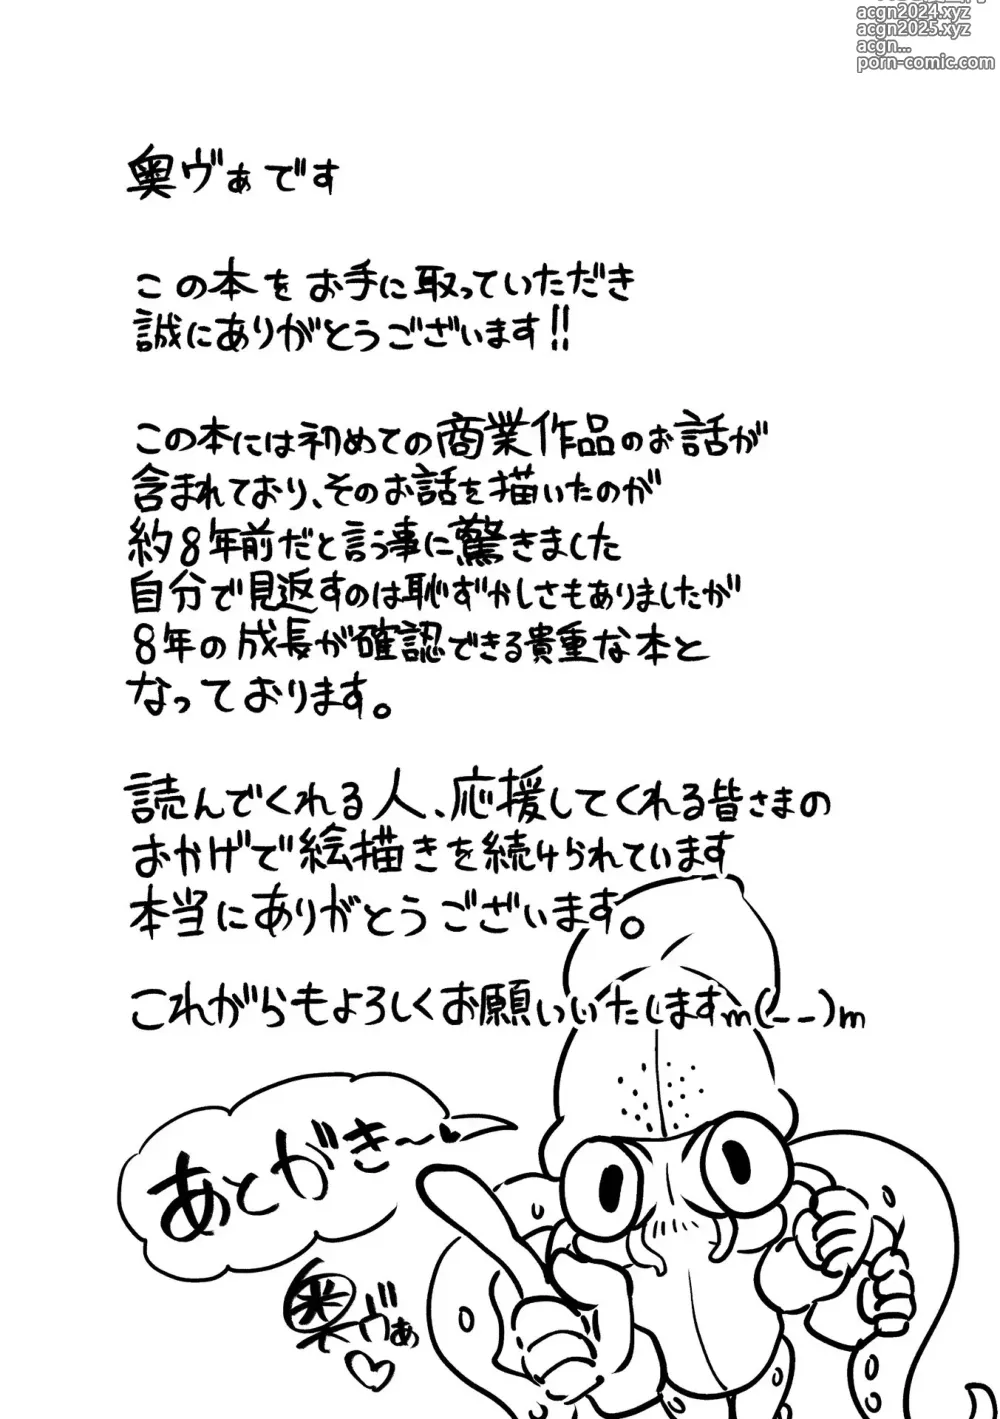 acgn2024.xyz
acgn2025.xyz
acgn...
porn-comic.com
奥ヴぁです
この本をお手に取っていただき
誠にありがとうございます!!
この本には初めての商業作品のお話が
含まれており、そのお話を描いたのが
約8年前だと言う事に驚きました
自分で見返すのは恥ずかしさもありましたが
8年の成長が確認できる貴重な本と
なっております。
読んでくれる人、応援してくれる皆さまの
おかげで絵描きを続けられています
本当にありがとうございます。
これからもよろしくお願いいたしますm(__)m
あとがき〜♥
奥ヴぁ♡